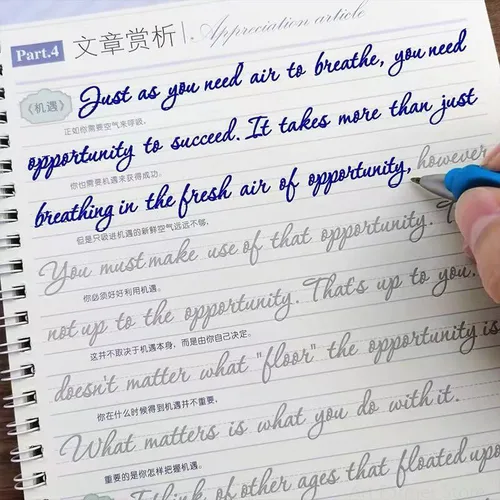 Part.4 文章赏析 Appreciation article
《机遇》 Just as you need air to breathe, you need
正如你需要空气来呼吸,
opportunity to succeed. It takes more than just
你也需要机遇来获得成功。
breathing in the fresh air of opportunity, however
但是只吸进机遇的新鲜空气远远不够,
You must make use of that opportunity.
你必须好好利用机遇。
not up to the opportunity. That's up to you.
这并不取决于机遇本身,而是由你自己决定。
doesn't matter what "floor" the opportunity is
你在什么时候得到机遇并不重要,
What matters is what you do with it.
重要的是你怎样把握机遇。
think of other ages that floated upo